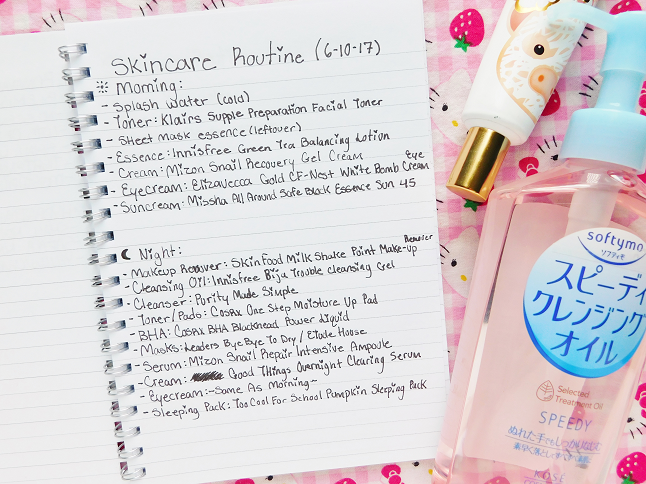 Skincare Routine (6-10-17)
Morning:
- Splash Water (cold)
- Toner: Klairs Supple Preparation Facial Toner
- Sheet Mask essence (leftover)
- Essence: Innisfree Green Tea Balancing Lotion
- Cream: Mizon Snail Recovery Gel Cream
- Eyecream: Elizavecca Gold CF-Nest White Bomb Eye Cream
- Suncream: Missha All Around Safe Block Essence Sun 45
Night:
- Makeup Remover: Skinfood Milk Shake Point Make-up Remover
- Cleansing Oil: Innisfree Bija Trouble Cleansing Gel
- Cleanser: Purity Made Simple
- Toner/Pads: Cosrx One Step Moisture Up Pad
- BHA: Cosrx BHA Blackhead Power Liquid
- Masks: Leaders Bye Bye To Dry / Etude House
- Serum: Mizon Snail Repair Intensive Ampoule
- Cream: Good Things Overnight Clearing Serum
- Eyecream: ~Same As Morning~
- Sleeping Pack: Too Cool For School Pumpkin Sleeping Pack
softymo
ソフティモ
スピーディ
クレンジング
オイル
Selected
Treatment Oil
SPEEDY
ぬれた手でも
KOSÉ